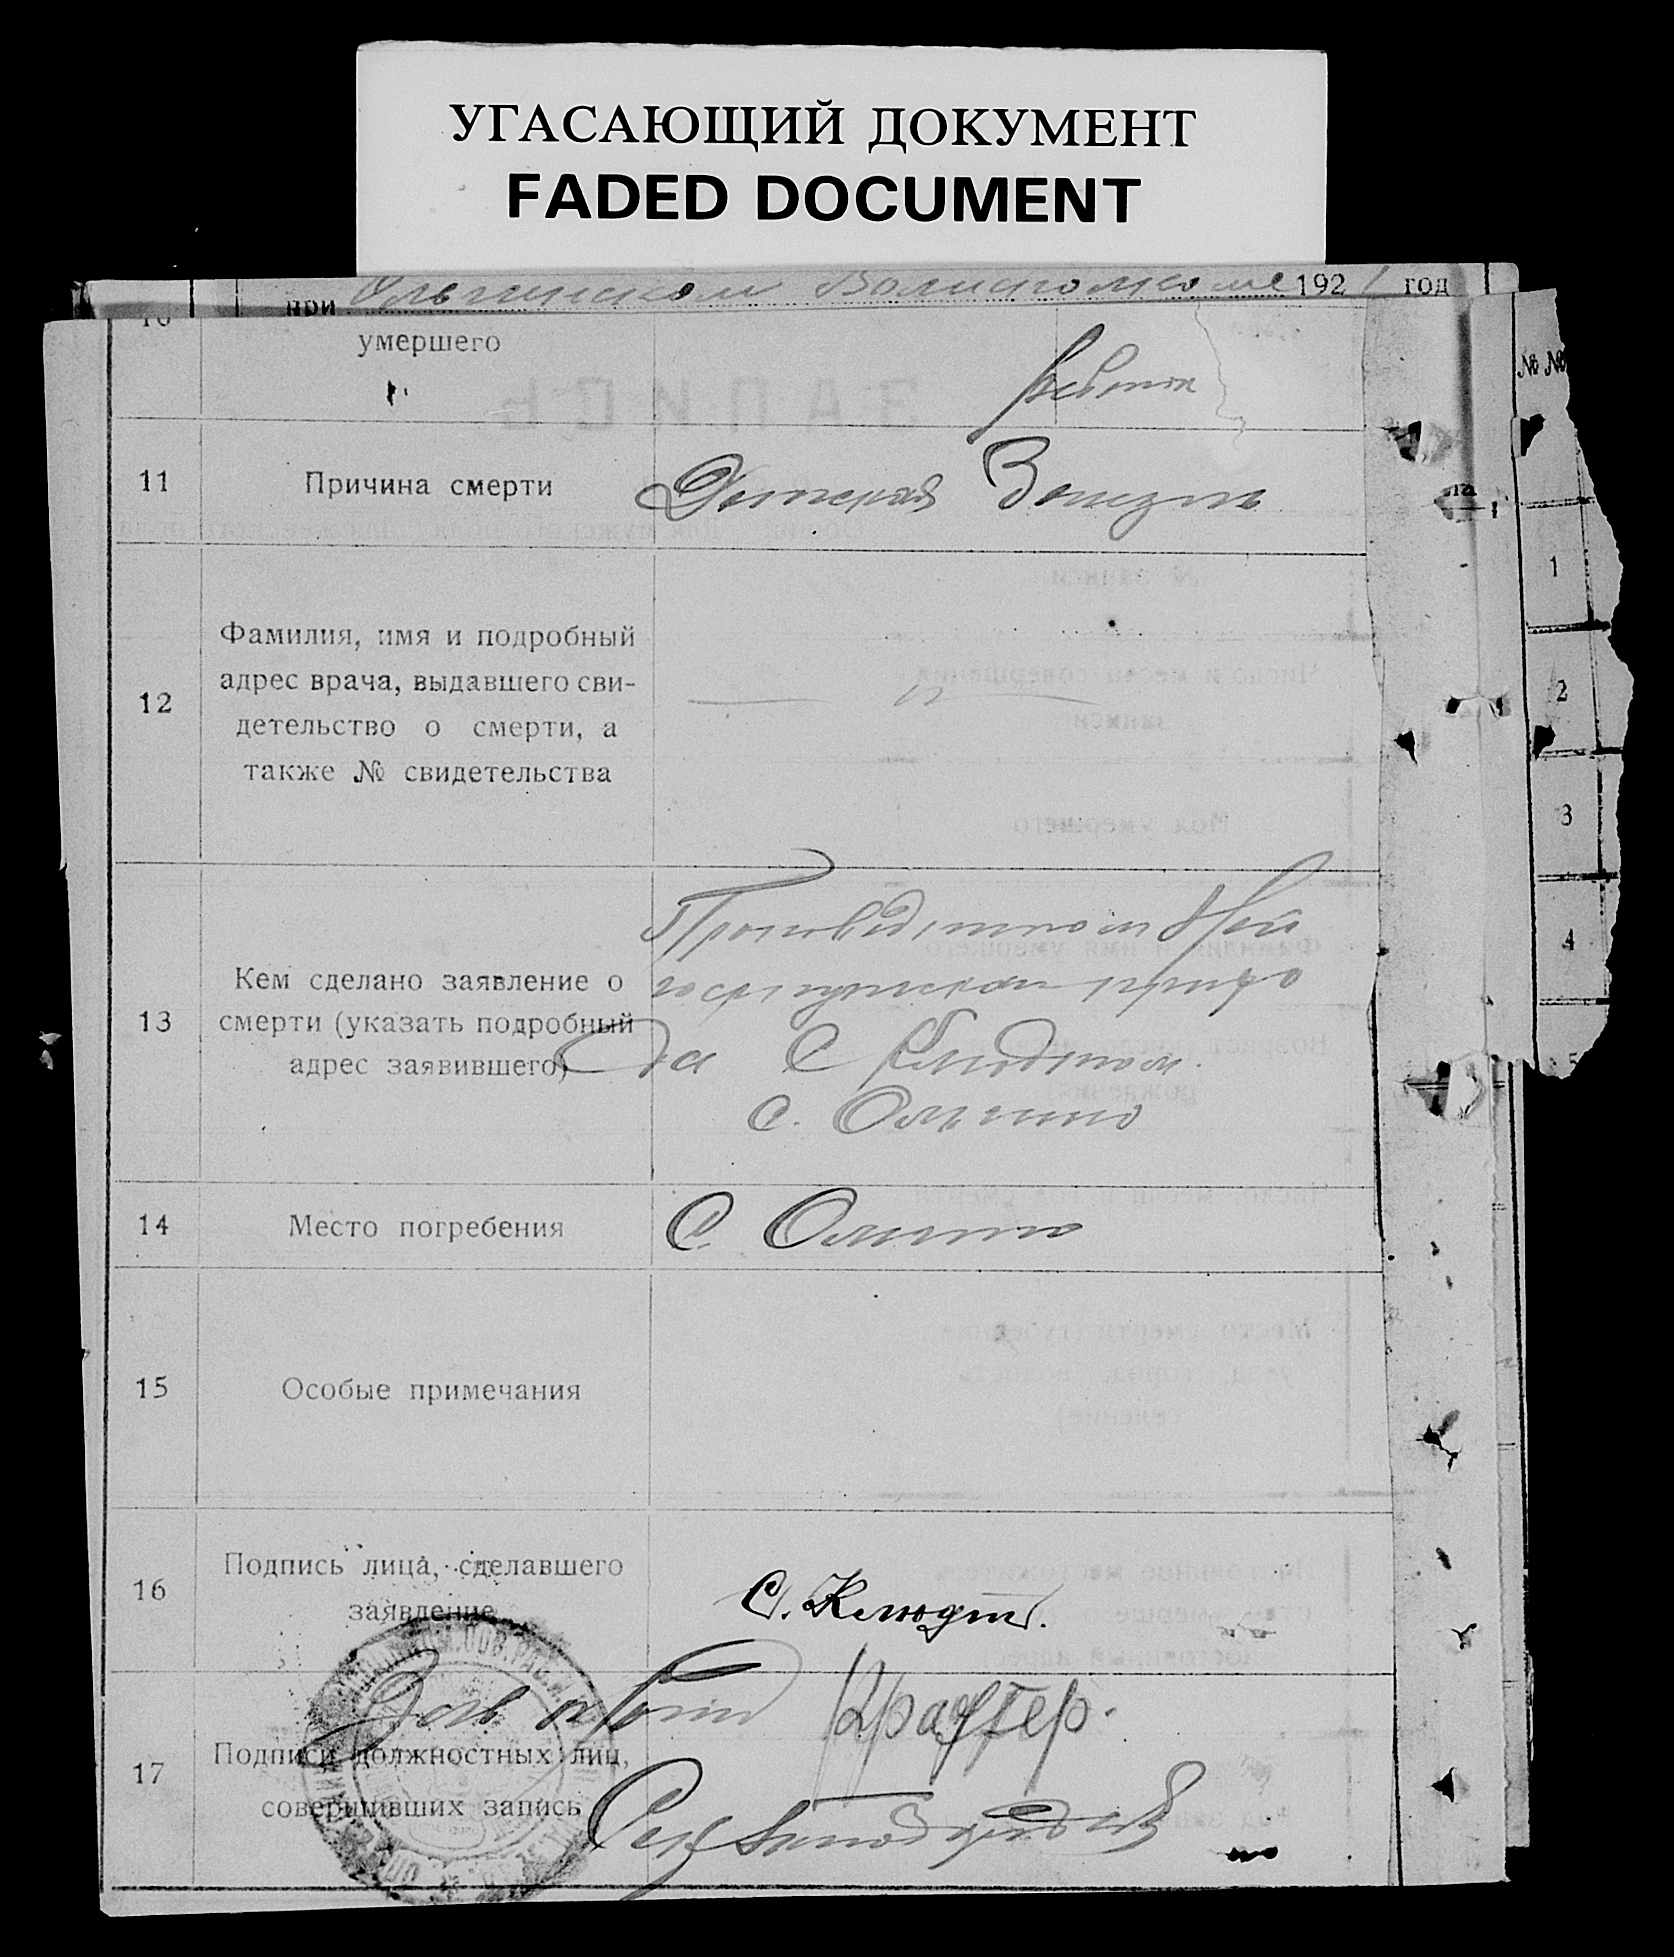 УГАСАЮЩИЙ ДОКУМЕНТ
FADED DOCUMENT
при Ольгинском Волисполкоме 192 1 год
10
умершего
ребенок
11
Причина смерти
Детская Болезнь
12
Фамилия, имя и подробный
адрес врача, выдавшего сви-
детельство о смерти, а
также № свидетельства
13
Кем сделано заявление о
смерти (указать подробный
адрес заявившего)
Проповедником
прихо
да С Клюдтом.
с. Ольгино
14
Место погребения
С. Ольгино
15
Особые примечания
16
Подпись лица, сделавшего
заявление
С. Клюдт.
17
Подписи должностных лиц,
совершивших запись
Крафтер.
№ №
1
2
3
4
5